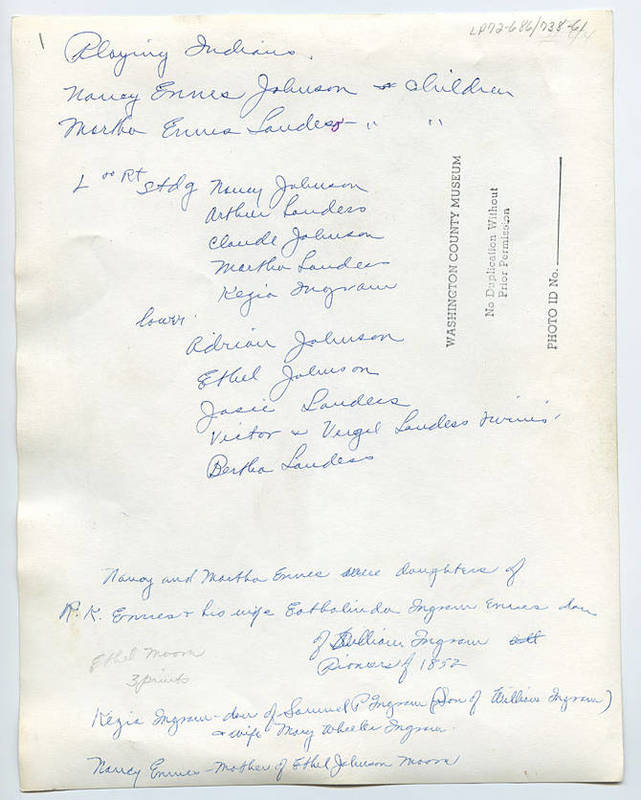 1
LP72-686/738-6
Playing Indians.
Nancy Ennes Johnson & children
Martha Ennes Landess - " "
L to Rt Stdg Nancy Johnson
Arthur Landess
Claude Johnson
Martha Landess
Kezia Ingram
lower
Adrian Johnson
Ethel Johnson
Josie Landess
Victor & Vergil Landess twins
Bertha Landess
WASHINGTON COUNTY MUSEUM
No Duplication Without
Prior Permission
PHOTO ID No.
Nancy and Martha Ennes were daughters of
R. K. Ennes & his wife Ingram Ennes dau
of William Ingram
Pioneers of 1852
Ethel Moorn
3 prints
Kezia Ingram - dau of Samuel P Ingram (Son of William Ingram)
& wife Mary Wheeler Ingram.
Nancy Ennes - Mother of Ethel Johnson Moorn